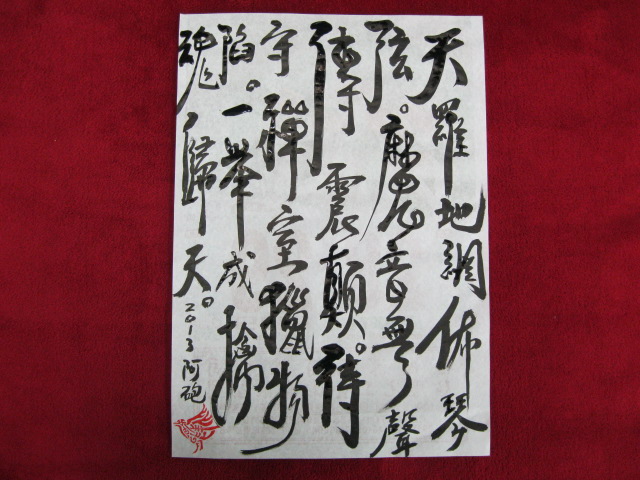 天羅地網佈琴
弦。魔音無聲
傳震顛。待
守禪室獵物
陷。一舉成擒
魂歸天。
2013 阿砲